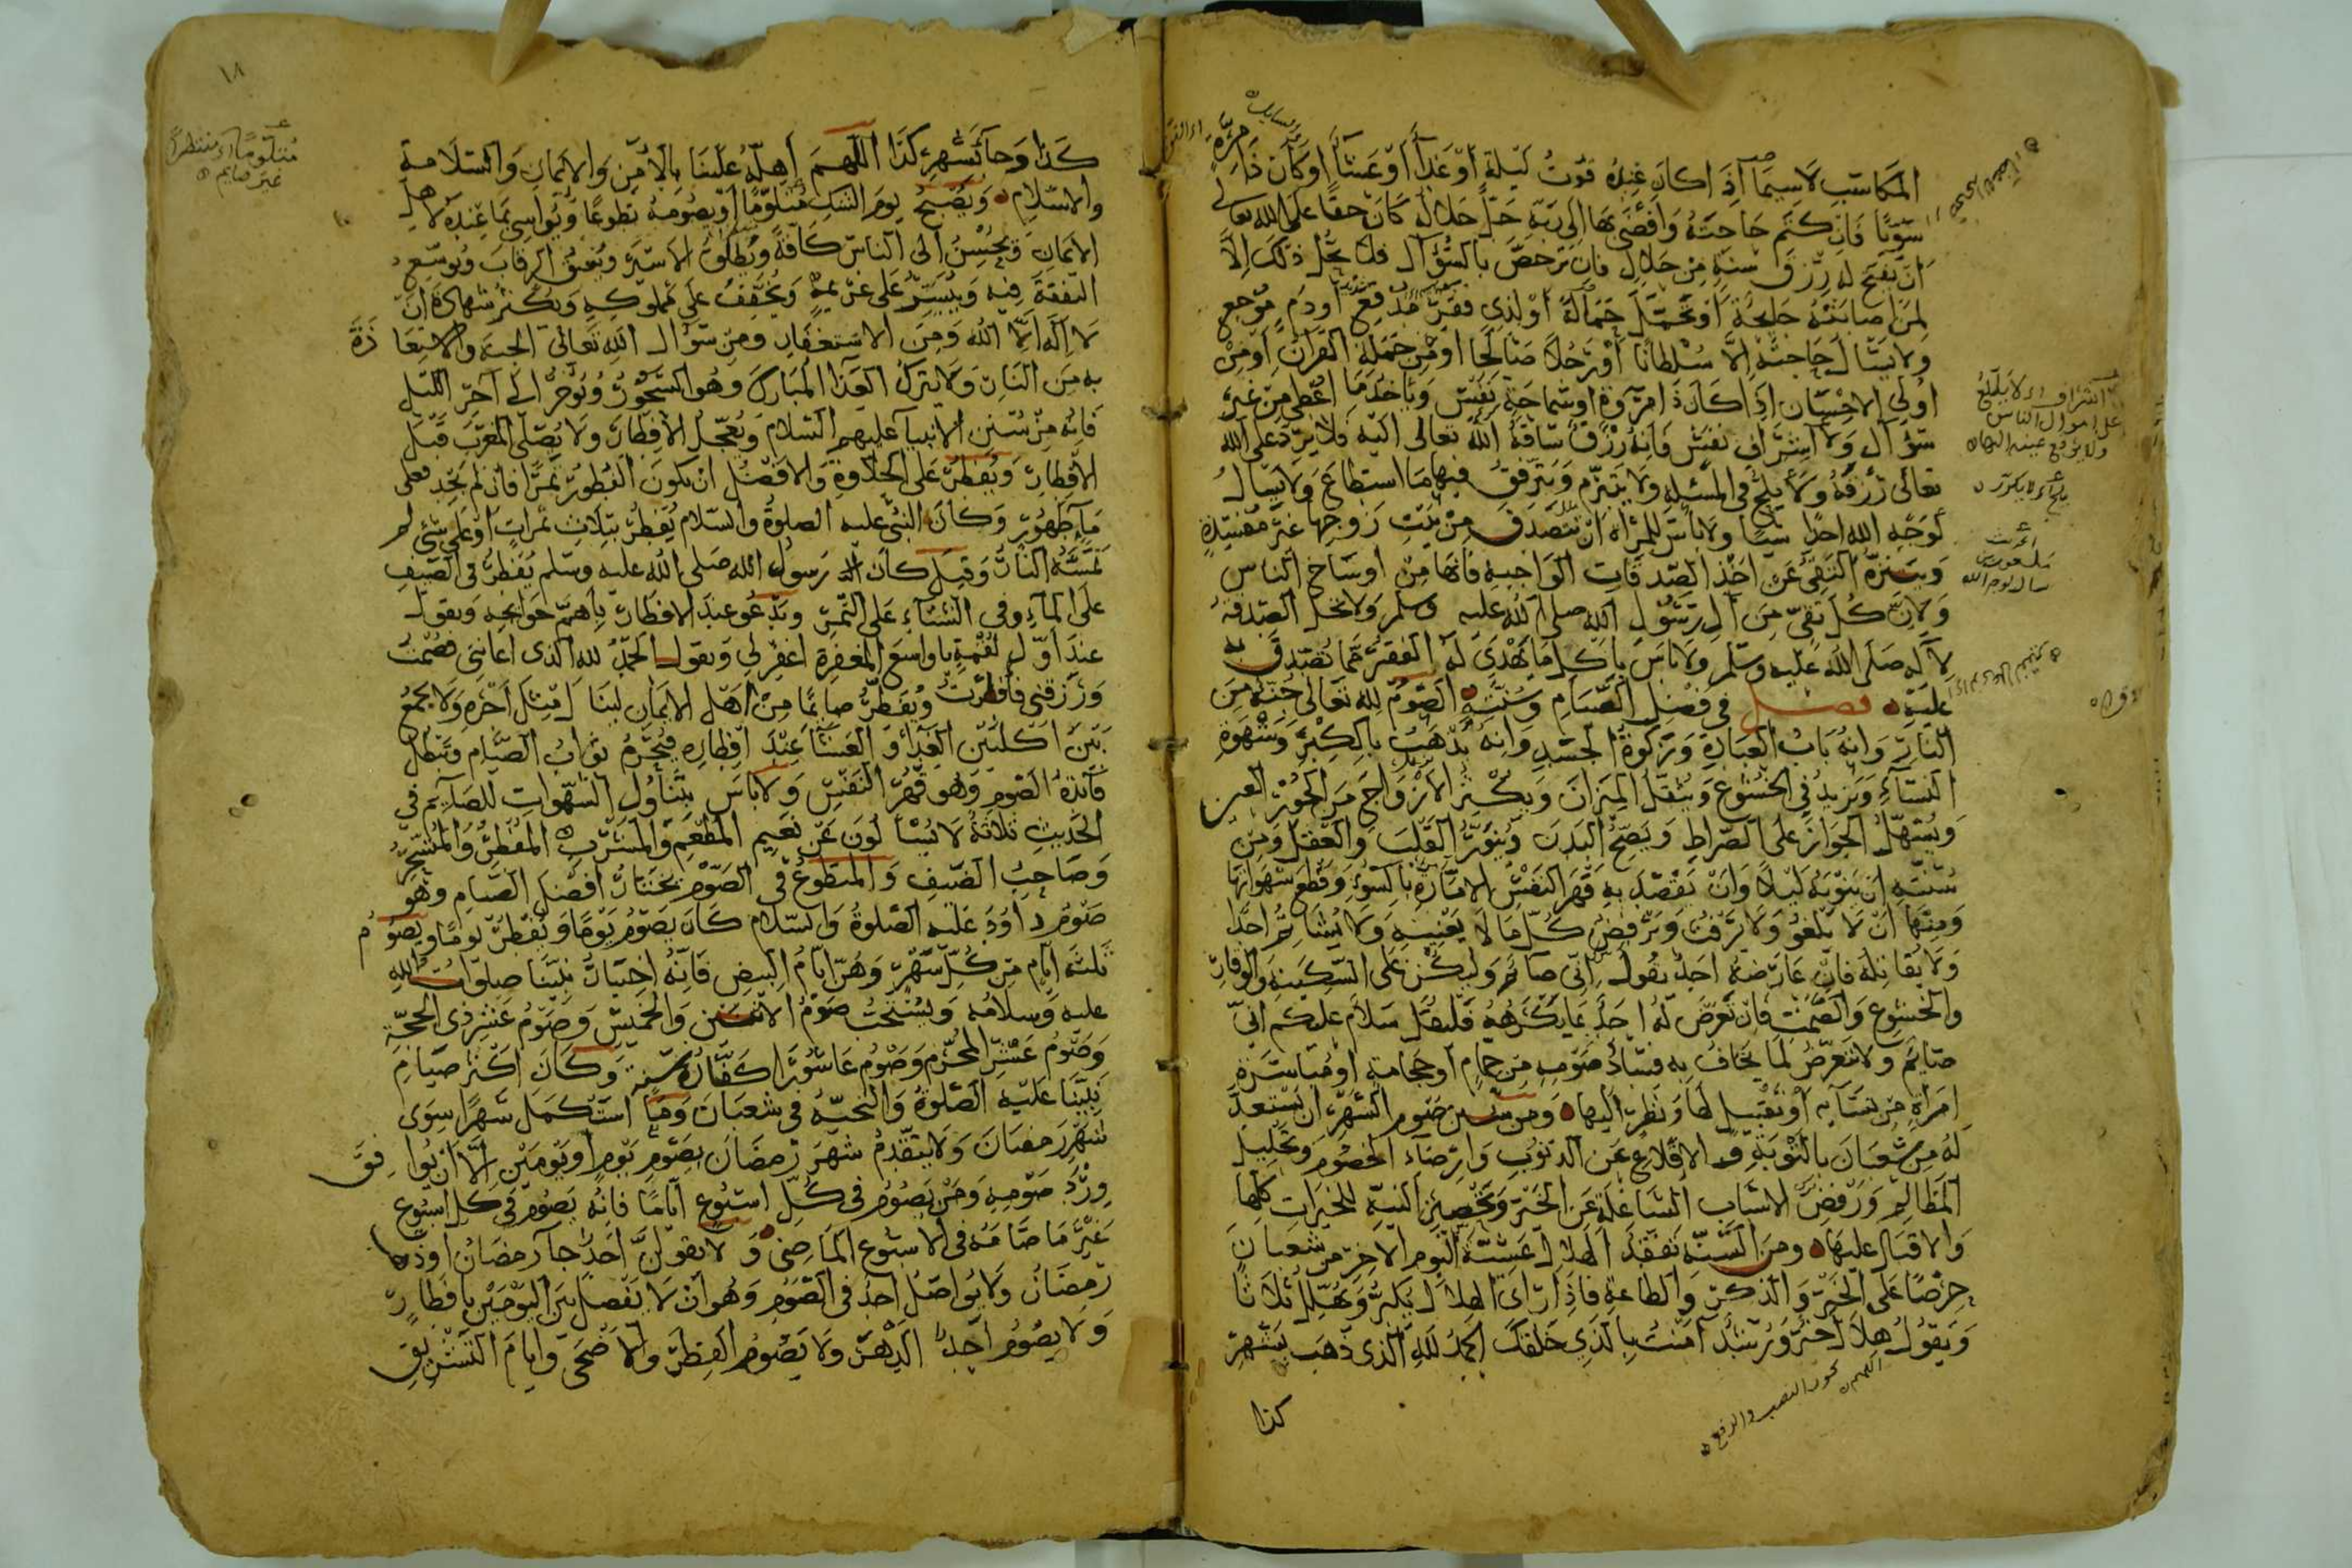 المكاسب لاسيما اذا كان عنده قوت ليلة او غداء او عشاء او كان ذا مرة
سويا فان كتم حاجته وافضى بها الى ربه عز جلاله كان حقا على الله تعالى
ان يفتح له رزق سنة من حلال فان ترخص بالسؤال فلا يحل ذلك الا
لمن اصابته جايحة او تحمل حمالة او لذى فقر مدقع او دم موجع
ولا يسال حاجته الا سلطانا او رجلا صالحا او من حملة القرآن او من
اولى الاحسان اذا كان ذا مروة او سماحة نفس وياخذ ما اعطى من غير
سؤال ولا اشراف نفس فانه رزق ساقه الله تعالى اليه فلا يرد على الله
تعالى رزقه ولا يلح فى المسئلة ولا يتبرم ويترفق فيها ما استطاع ولا يسال
لوجه الله احدا شيئا ولا باس للمراة ان تتصدق من بيت زوجها غير مفسدة
ويتنزه التقى عن اخذ الصدقات الواجبة فانها من اوساخ الناس
ولان كل تقى من آل رسول الله صلى الله عليه وسلم ولا تحل الصدقة
لآله صلى الله عليه وسلم ولا باس باكل ما يهدى له الفقير مما تصدق به
عليه فصل فى فضل الصيام وسننه الصوم لله تعالى جنة من
النار وانه باب العبادة وزكوة الجسد وانه يذهب بالكبر وشهوة
النساء ويزيد فى الخشوع ويثقل الميزان ويكثر الازواج من الحور العين
ويسهل الجواز على الصراط ويصح البدن وينور القلب والعقل ومن
سنته ان ينويه ليلا وان يقصد به قهر النفس الامارة بالسوء وقطع شهواتها
ومنها ان لا يلغو ولا يرفث ويرفض كل ما لا يعنيه ولا يشاتم احدا
ولا يقاتله فان عارضه احد يقول انى صائم وليكن على السكينة والوقار
والخشوع والصمت فان تعرض له احد بما يكرهه فليقل سلام عليكم انى
صايم ولا يتعرض لما يخاف به فساد صومه من حمام او حجامة او مباشرة
امراة من نسائه او تقبيل لها ونظر اليها ومن سنن صوم الشهر ان يستعد
له من شعبان بالتوبة والاقلاع عن الذنوب وارضاء الخصوم وتحليل
المظالم ورفض الاسباب الشاغلة عن الخير وتحصين النية للخيرات كلها
والاقبال عليها ومن السنة تفقد الهلال عشية اليوم الاخر من شعبان
حرصا على الخير والذكر والطاعة فاذا راى الهلال يكبر ويهلل ثلاثا
ويقول هلال خير ورشد آمنت بالذى خلقك الحمد لله الذى ذهب بشهر
كذا
يجوز النصب والرفع
اشراف اى لا يطلع
على اموال الناس
ولا يرفع عينه اليها
يلح اى لا يكرر
١٨
كذا وجاء بشهر كذا اللهم اهله علينا بالامن والايمان والسلامة
والاسلام ويصبح يوم الشك متلوما او يصومه تطوعا ويواسى بما عنده لاهل
الايمان ويحسن الى الناس كافة ويطلق الاسير ويعتق الرقاب ويوسع
النفقة فيه وييسر على غريمه ويخفف على مملوكه ويكثر شهادة ان
لا اله الا الله ومن الاستغفار ومن سؤال الله تعالى الجنة والاستعاذة
به من النار ولا يترك الغدا المبارك وهو السحور ويؤخر الى آخر الليل
فانه من سنن الانبيا عليهم السلام ويعجل الافطار ولا يصلى المغرب قبل
الافطار ويفطر على الحلاوة والافضل ان يكون الفطور تمرا فان لم يجد فعلى
ماء طهور وكان النبى عليه الصلوة والسلام يفطر بثلاث تمرات او على شئ لم
تمسه النار وقيل كان رسول الله صلى الله عليه وسلم يفطر فى الصيف
على الماء وفى الشتاء على التمر ويدعو عند الافطار باهم حوائجه ويقول
عند اول لقمة يا واسع المغفرة اغفر لى ويقول الحمد لله الذى اعاننى فصمت
ورزقنى فافطرت ويفطر صايما من اهل الايمان لينال مثل اجره ولا يجمع
بين اكلتين الغداء والعشاء عند افطاره فيحرم ثواب الصيام وتبطل
فائدة الصوم وهو قهر النفس ولا باس بتناول الشهوات للصايم فى
الحديث ثلاثة لا يسالون عن نعيم المطعم والمشرب المفطر والمتسحر
وصاحب الضيف والمتطوع فى الصوم يختار افضل الصيام وهو
صوم داود عليه الصلوة والسلام كان يصوم يوما ويفطر يوما ويصوم
ثلثة ايام من كل شهر وهن ايام البيض فانه اختيار نبينا صلوات الله
عليه وسلامه ويستحب صوم الاثنين والخميس وصوم عشر ذى الحجة
وصوم عشر المحرم وصوم عاشورا كفارة سنة وكان اكثر صيام
نبينا عليه الصلوة والتحية فى شعبان وما استكمل شهرا سوى
شهر رمضان ولا يتقدم شهر رمضان بصوم يوم او يومين الا ان يوافق
ورد صومه ومن يصوم فى كل اسبوع اياما فانه يصوم فى كل اسبوع
غير ما صامه فى الاسبوع الماضى ولا يقولن احد جآ رمضان او ذهب
رمضان ولا يواصل احد فى الصوم وهو ان لا يفصل بين اليومين بافطار
ولا يصوم احد الدهر ولا يصوم الفطر والاضحى وايام التشريق
متلوما اى منتظرا
غير صايم